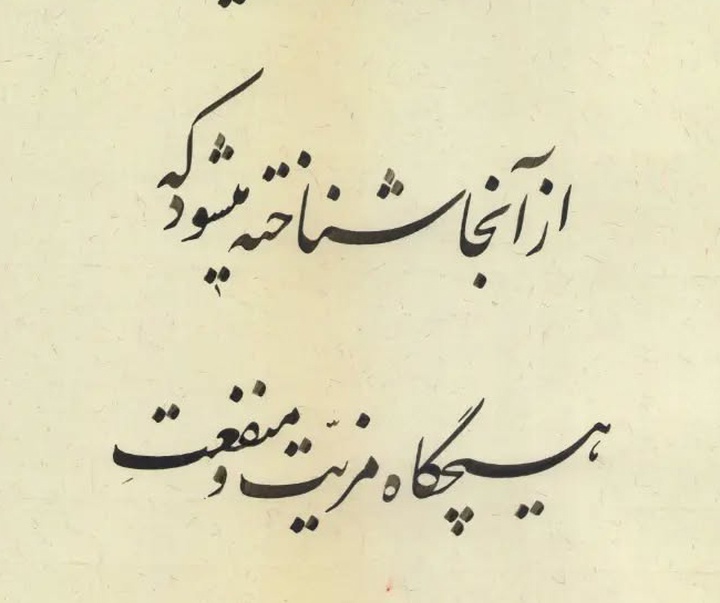 از آنجا شناخته میشود که
هیچگاه مزیّت و منفعتِ